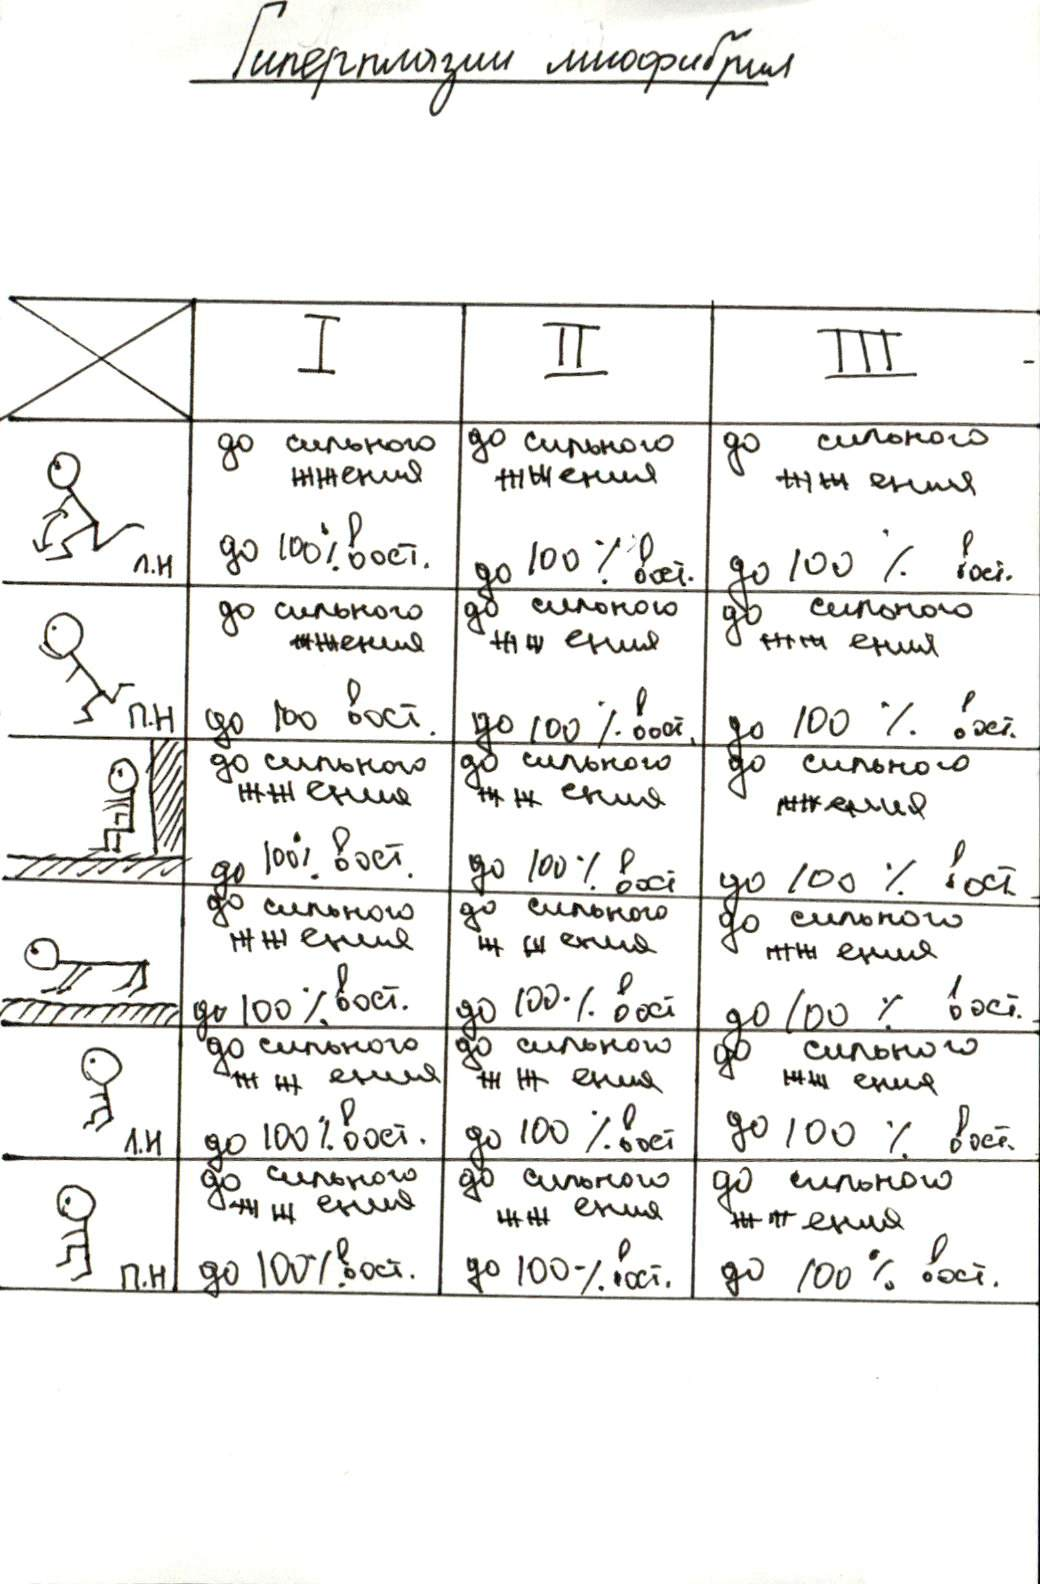 Гиперплазии миофибрил
I
II
III
Л.Н
до сильного
жжения
до 100% вост.
до сильного
жжения
до 100% вост.
до сильного
жжения
до 100% вост.
П.Н
до сильного
жжения
до 100 вост.
до сильного
жжения
до 100% вост.
до сильного
жжения
до 100% вост.
до сильного
жжения
до 100% вост.
до сильного
жжения
до 100% вост
до сильного
жжения
до 100% вост.
до сильного
жжения
до 100% вост.
до сильного
жжения
до 100% вост
до сильного
жжения
до 100% вост.
Л.Н
до сильного
жжения
до 100% вост.
до сильного
жжения
до 100% вост
до сильного
жжения
до 100% вост.
П.Н
до сильного
жжения
до 100% вост.
до сильного
жжения
до 100% вост.
до сильного
жжения
до 100% вост.